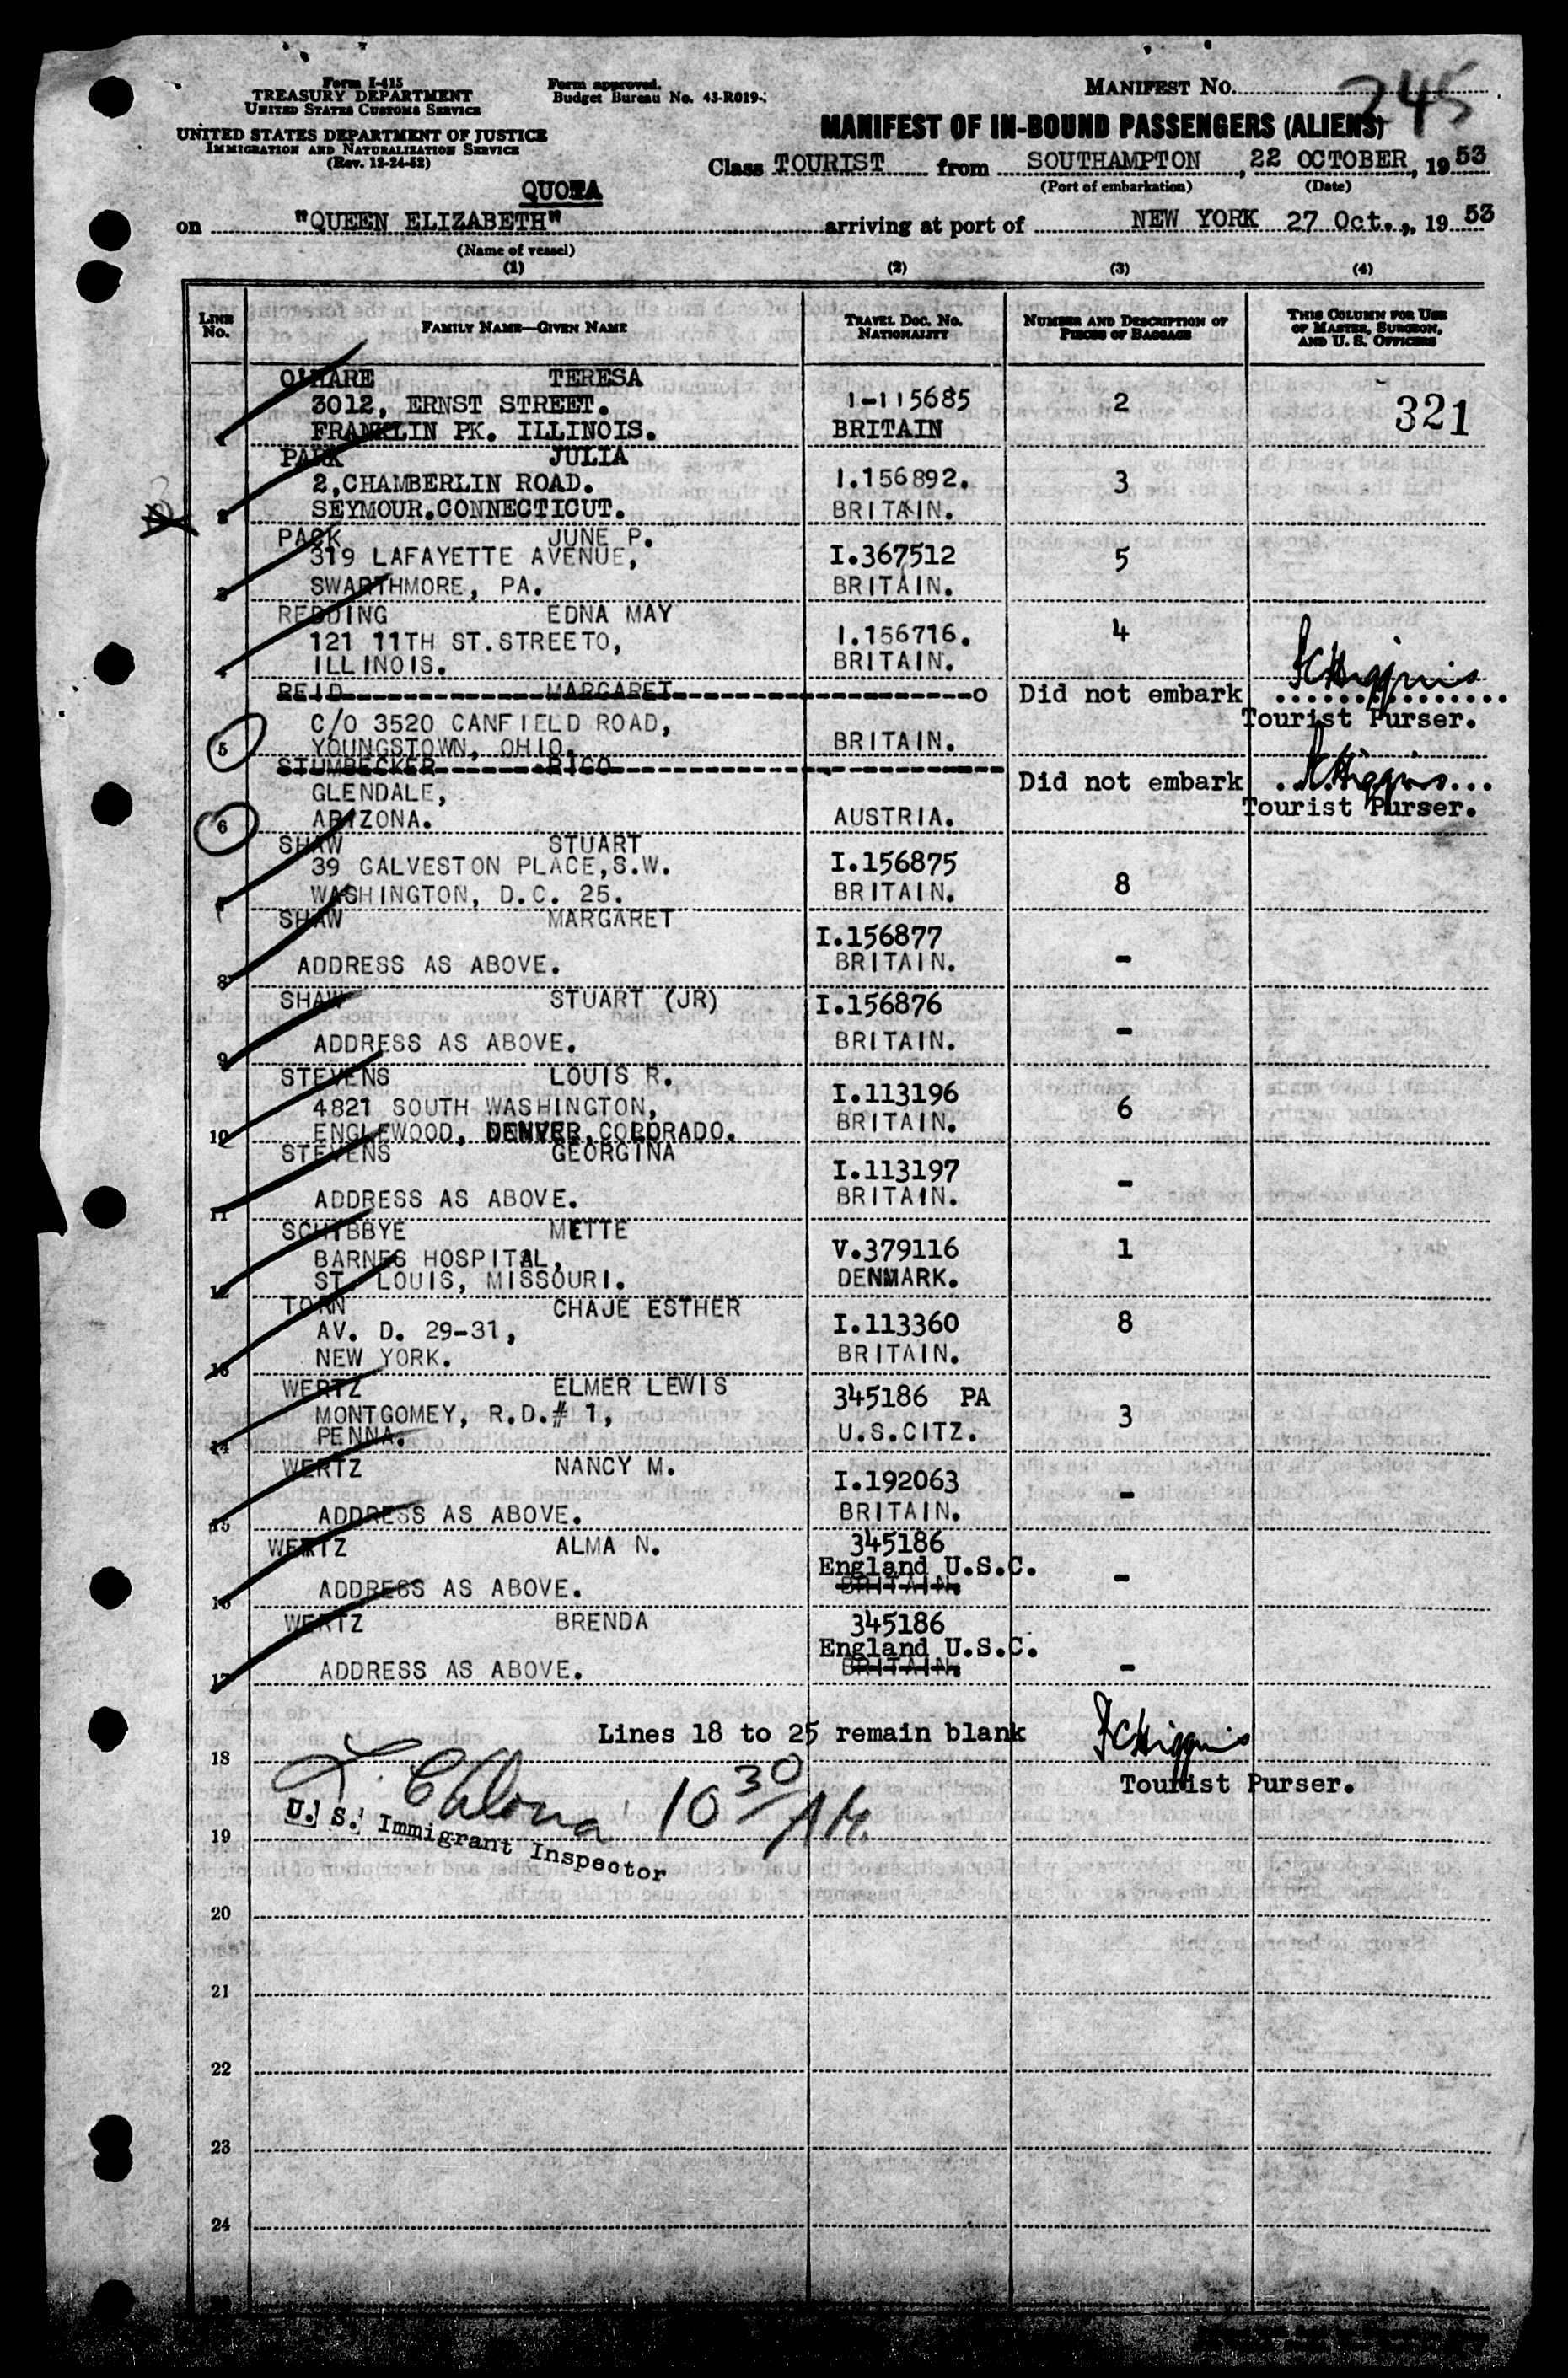 Form I-415
TREASURY DEPARTMENT
UNITED STATES CUSTOMS SERVICE
UNITED STATES DEPARTMENT OF JUSTICE
IMMIGRATION AND NATURALIZATION SERVICE
(Rev. 12-24-52)
Form approved.
Budget Bureau No. 43-R019-
MANIFEST No. 245
MANIFEST OF IN-BOUND PASSENGERS (ALIENS)
Class TOURIST from SOUTHAMPTON, 22 OCTOBER, 1953
(Port of embarkation) (Date)
QUOTA
on "QUEEN ELIZABETH" arriving at port of NEW YORK 27 Oct., 1953
(Name of vessel)
(1) (2) (3) (4)
LINE No. FAMILY NAME—GIVEN NAME TRAVEL DOC. NO. NATIONALITY NUMBER AND DESCRIPTION OF PIECES OF BAGGAGE THIS COLUMN FOR USE OF MASTER, SURGEON, AND U. S. OFFICERS
O'HARE TERESA
3012, ERNST STREET. 1-115685 2 321
FRANKLIN PK. ILLINOIS. BRITAIN
PARK JULIA
2,CHAMBERLIN ROAD. I.156892. 3
2 SEYMOUR.CONNECTICUT. BRITAIN.
PACK JUNE P.
319 LAFAYETTE AVENUE, I.367512 5
3 SWARTHMORE, PA. BRITAIN.
REDDING EDNA MAY 4
121 11TH ST.STREETO, I.156716.
4 ILLINOIS. BRITAIN.
REID MARGARET o Did not embark
C/O 3520 CANFIELD ROAD, Tourist Purser.
5 YOUNGSTOWN, OHIO. BRITAIN.
STUMBECKER RICO Did not embark
GLENDALE, Tourist Purser.
6 ARIZONA. AUSTRIA.
SHAW STUART
39 GALVESTON PLACE,S.W. I.156875 8
7 WASHINGTON, D.C. 25. BRITAIN.
SHAW MARGARET
I.156877
8 ADDRESS AS ABOVE. BRITAIN. -
SHAW STUART (JR) I.156876
9 ADDRESS AS ABOVE. BRITAIN. -
STEVENS LOUIS R.
4821 SOUTH WASHINGTON, I.113196 6
10 ENGLEWOOD, DENVER,COLORADO. BRITAIN.
STEVENS GEORGINA
I.113197 -
11 ADDRESS AS ABOVE. BRITAIN.
SCHIBBYE METTE
BARNES HOSPITAL, V.379116 1
12 ST. LOUIS, MISSOURI. DENMARK.
TORN CHAJE ESTHER
AV. D. 29-31, I.113360 8
13 NEW YORK. BRITAIN.
WERTZ ELMER LEWIS 345186 PA
MONTGOMEY, R.D.# 1, 3
14 PENNA. U.S.CITZ.
WERTZ NANCY M. I.192063
15 ADDRESS AS ABOVE. BRITAIN. -
WERTZ ALMA N. 345186
England U.S.C.
16 ADDRESS AS ABOVE. BRITAIN. -
WERTZ BRENDA 345186
England U.S.C.
17 ADDRESS AS ABOVE. BRITAIN. -
Lines 18 to 25 remain blank
18
Tourist Purser.
10 30 AM.
U. S. Immigrant Inspector
19
20
21
22
23
24